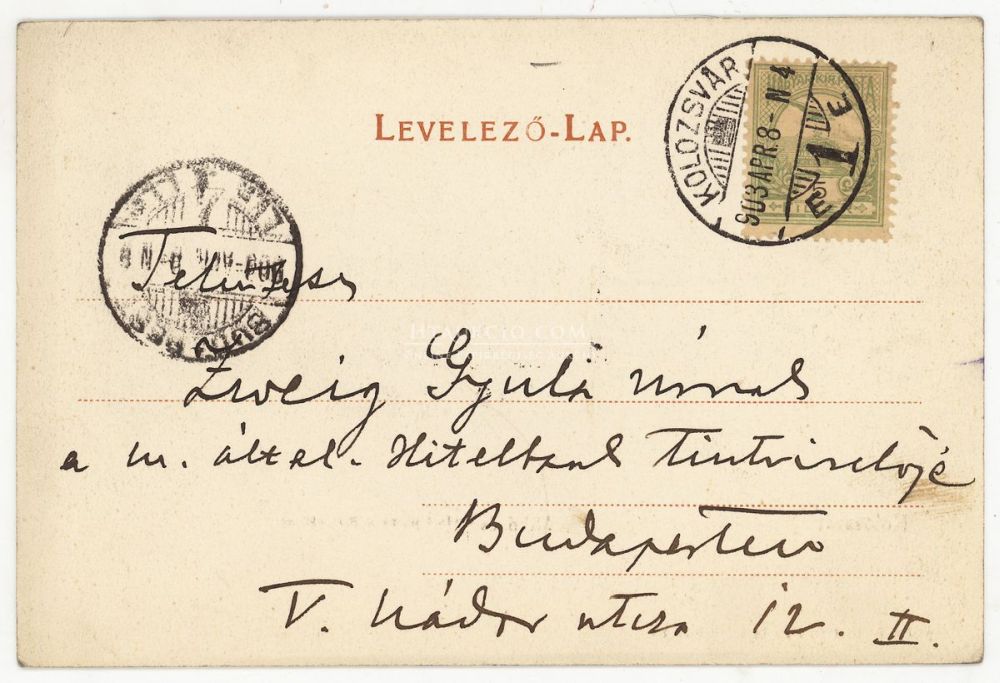 LEVELEZŐ-LAP.
KOLOZSVÁR
903 APR. 8 - N 4
1
E
MAGYAR KIR. POSTA
Zweig Gyula úrnak
a m. által. Hitelbank tisztviselője
Budapesten
V. Nádor utcza 12. II.